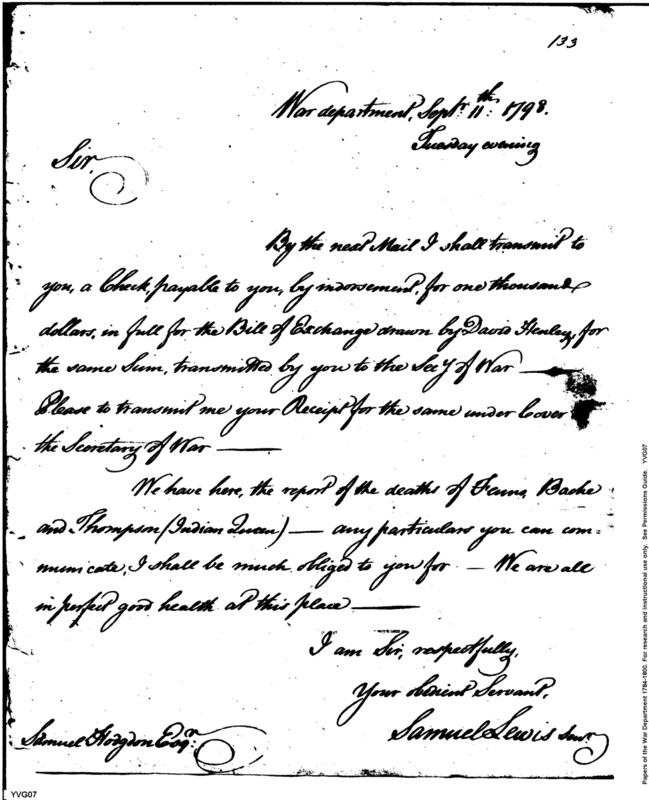 133
War department, Septr. 11th: 1798.
Tuesday evening
Sir,
By the next Mail I shall transmit to
you, a Check, payable to you, by indorsement, for one thousand
dollars, in full for the Bill of Exchange drawn by David Henley, for
the same Sum, transmitted by you to the Secy of War —
Please to transmit me your Receipt for the same under Cover
the Secretary of War —
We have here, the report of the deaths of Fenno, Bache
and Thompson (Indian Queen) — any particulars you can com=
municate, I shall be much obliged to you for — We are all
in perfect good health at this place —
I am Sir, respectfully,
Your obedient Servant,
Samuel Lewis Senr.
Samuel Hodgdon Esqr:
YVG07
Papers of the War Department 1784-1800. For research and instructional use only. See Permissions Guide. YVG07